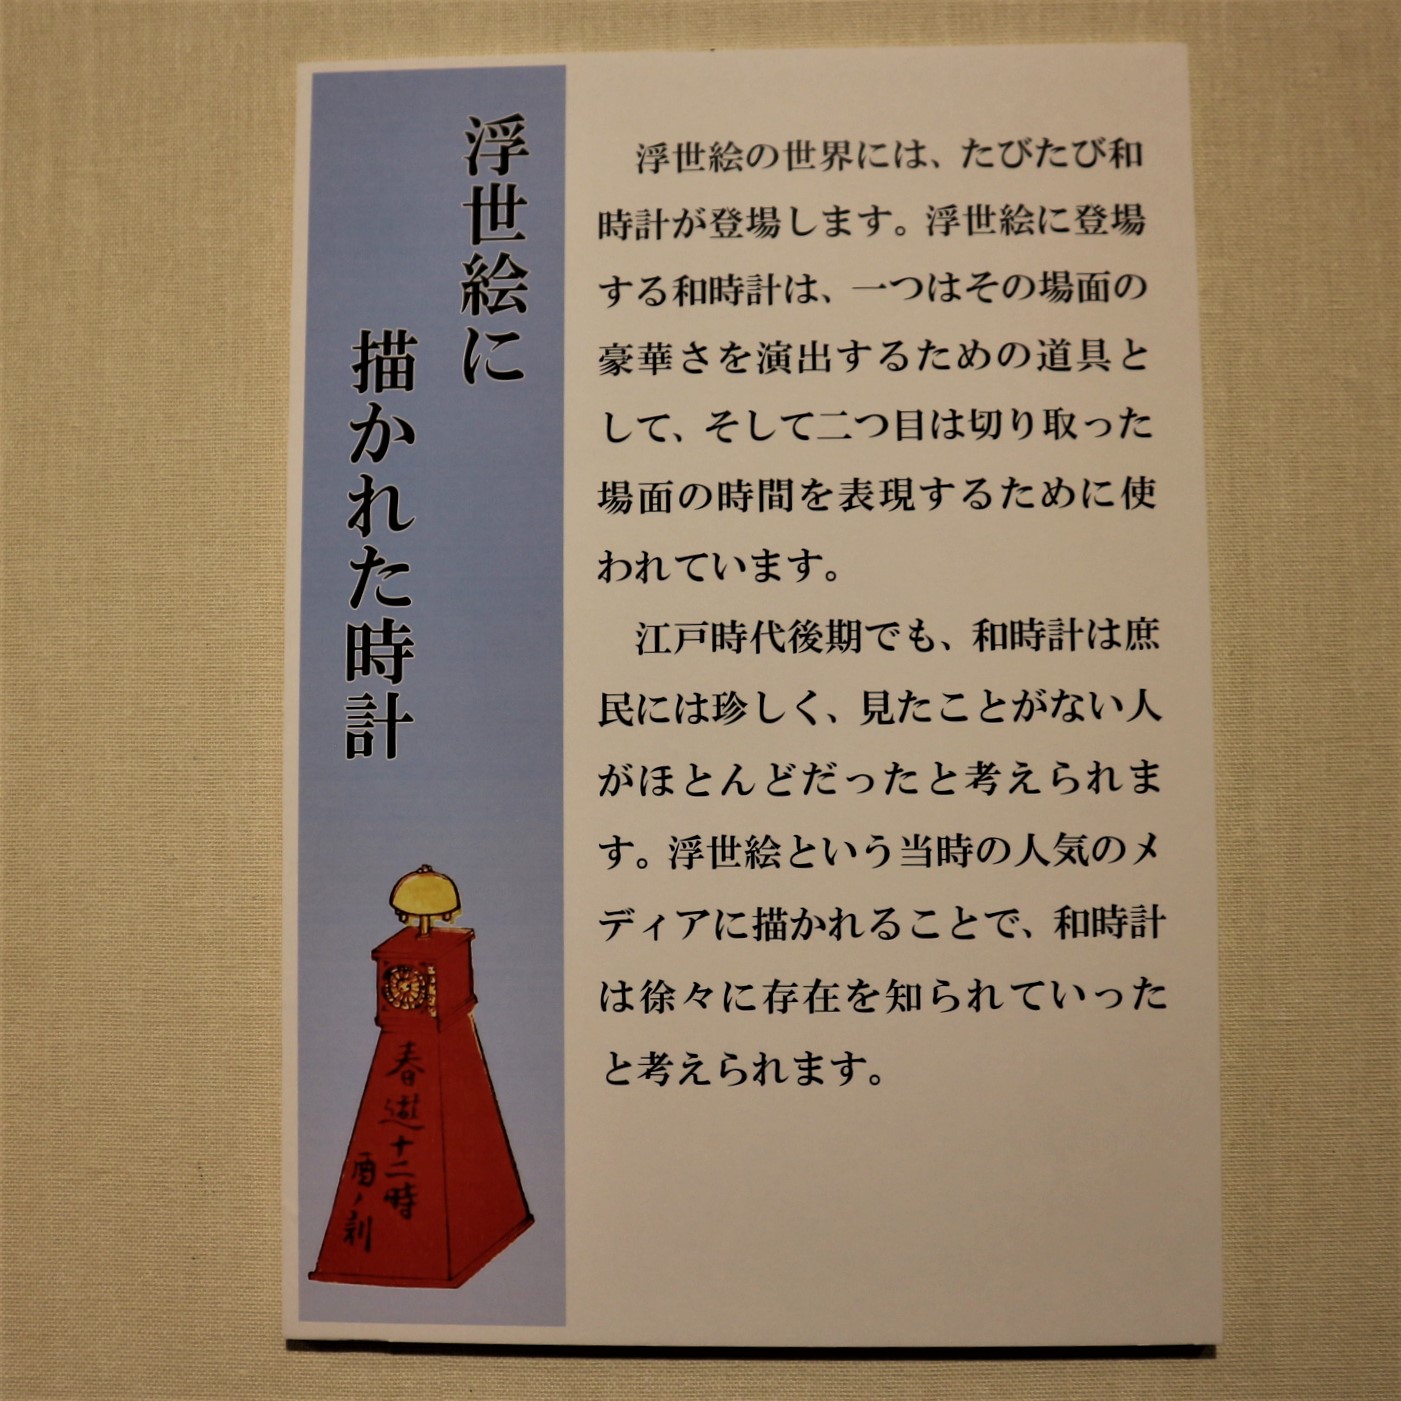 浮世絵に
描かれた時計
浮世絵の世界には、たびたび和
時計が登場します。浮世絵に登場
する和時計は、一つはその場面の
豪華さを演出するための道具と
して、そして二つ目は切り取った
場面の時間を表現するために使
われています。
江戸時代後期でも、和時計は庶
民には珍しく、見たことがない人
がほとんどだったと考えられま
す。浮世絵という当時の人気のメ
ディアに描かれることで、和時計
は徐々に存在を知られていった
と考えられます。
春遊十二時
酉ノ刻